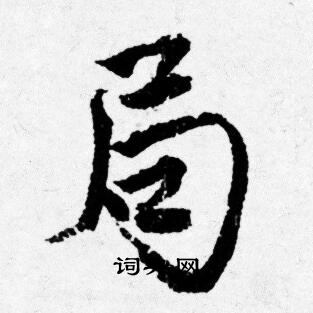 局
词典网